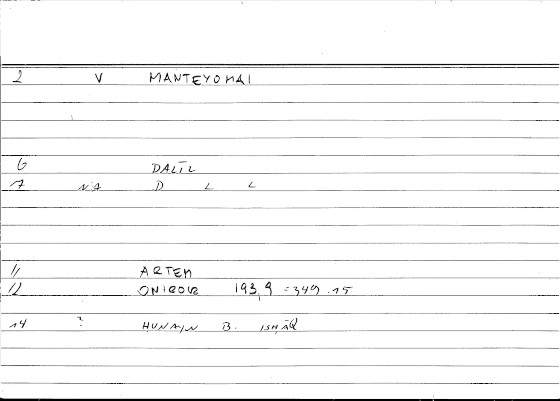 2 V MANTEYOMAI
6 DALĪL
7 NA D L L
11 ARTEM
12 ONIROCR 193,9 = 349.15
14 ? HUNAYN B. ISḤĀQ